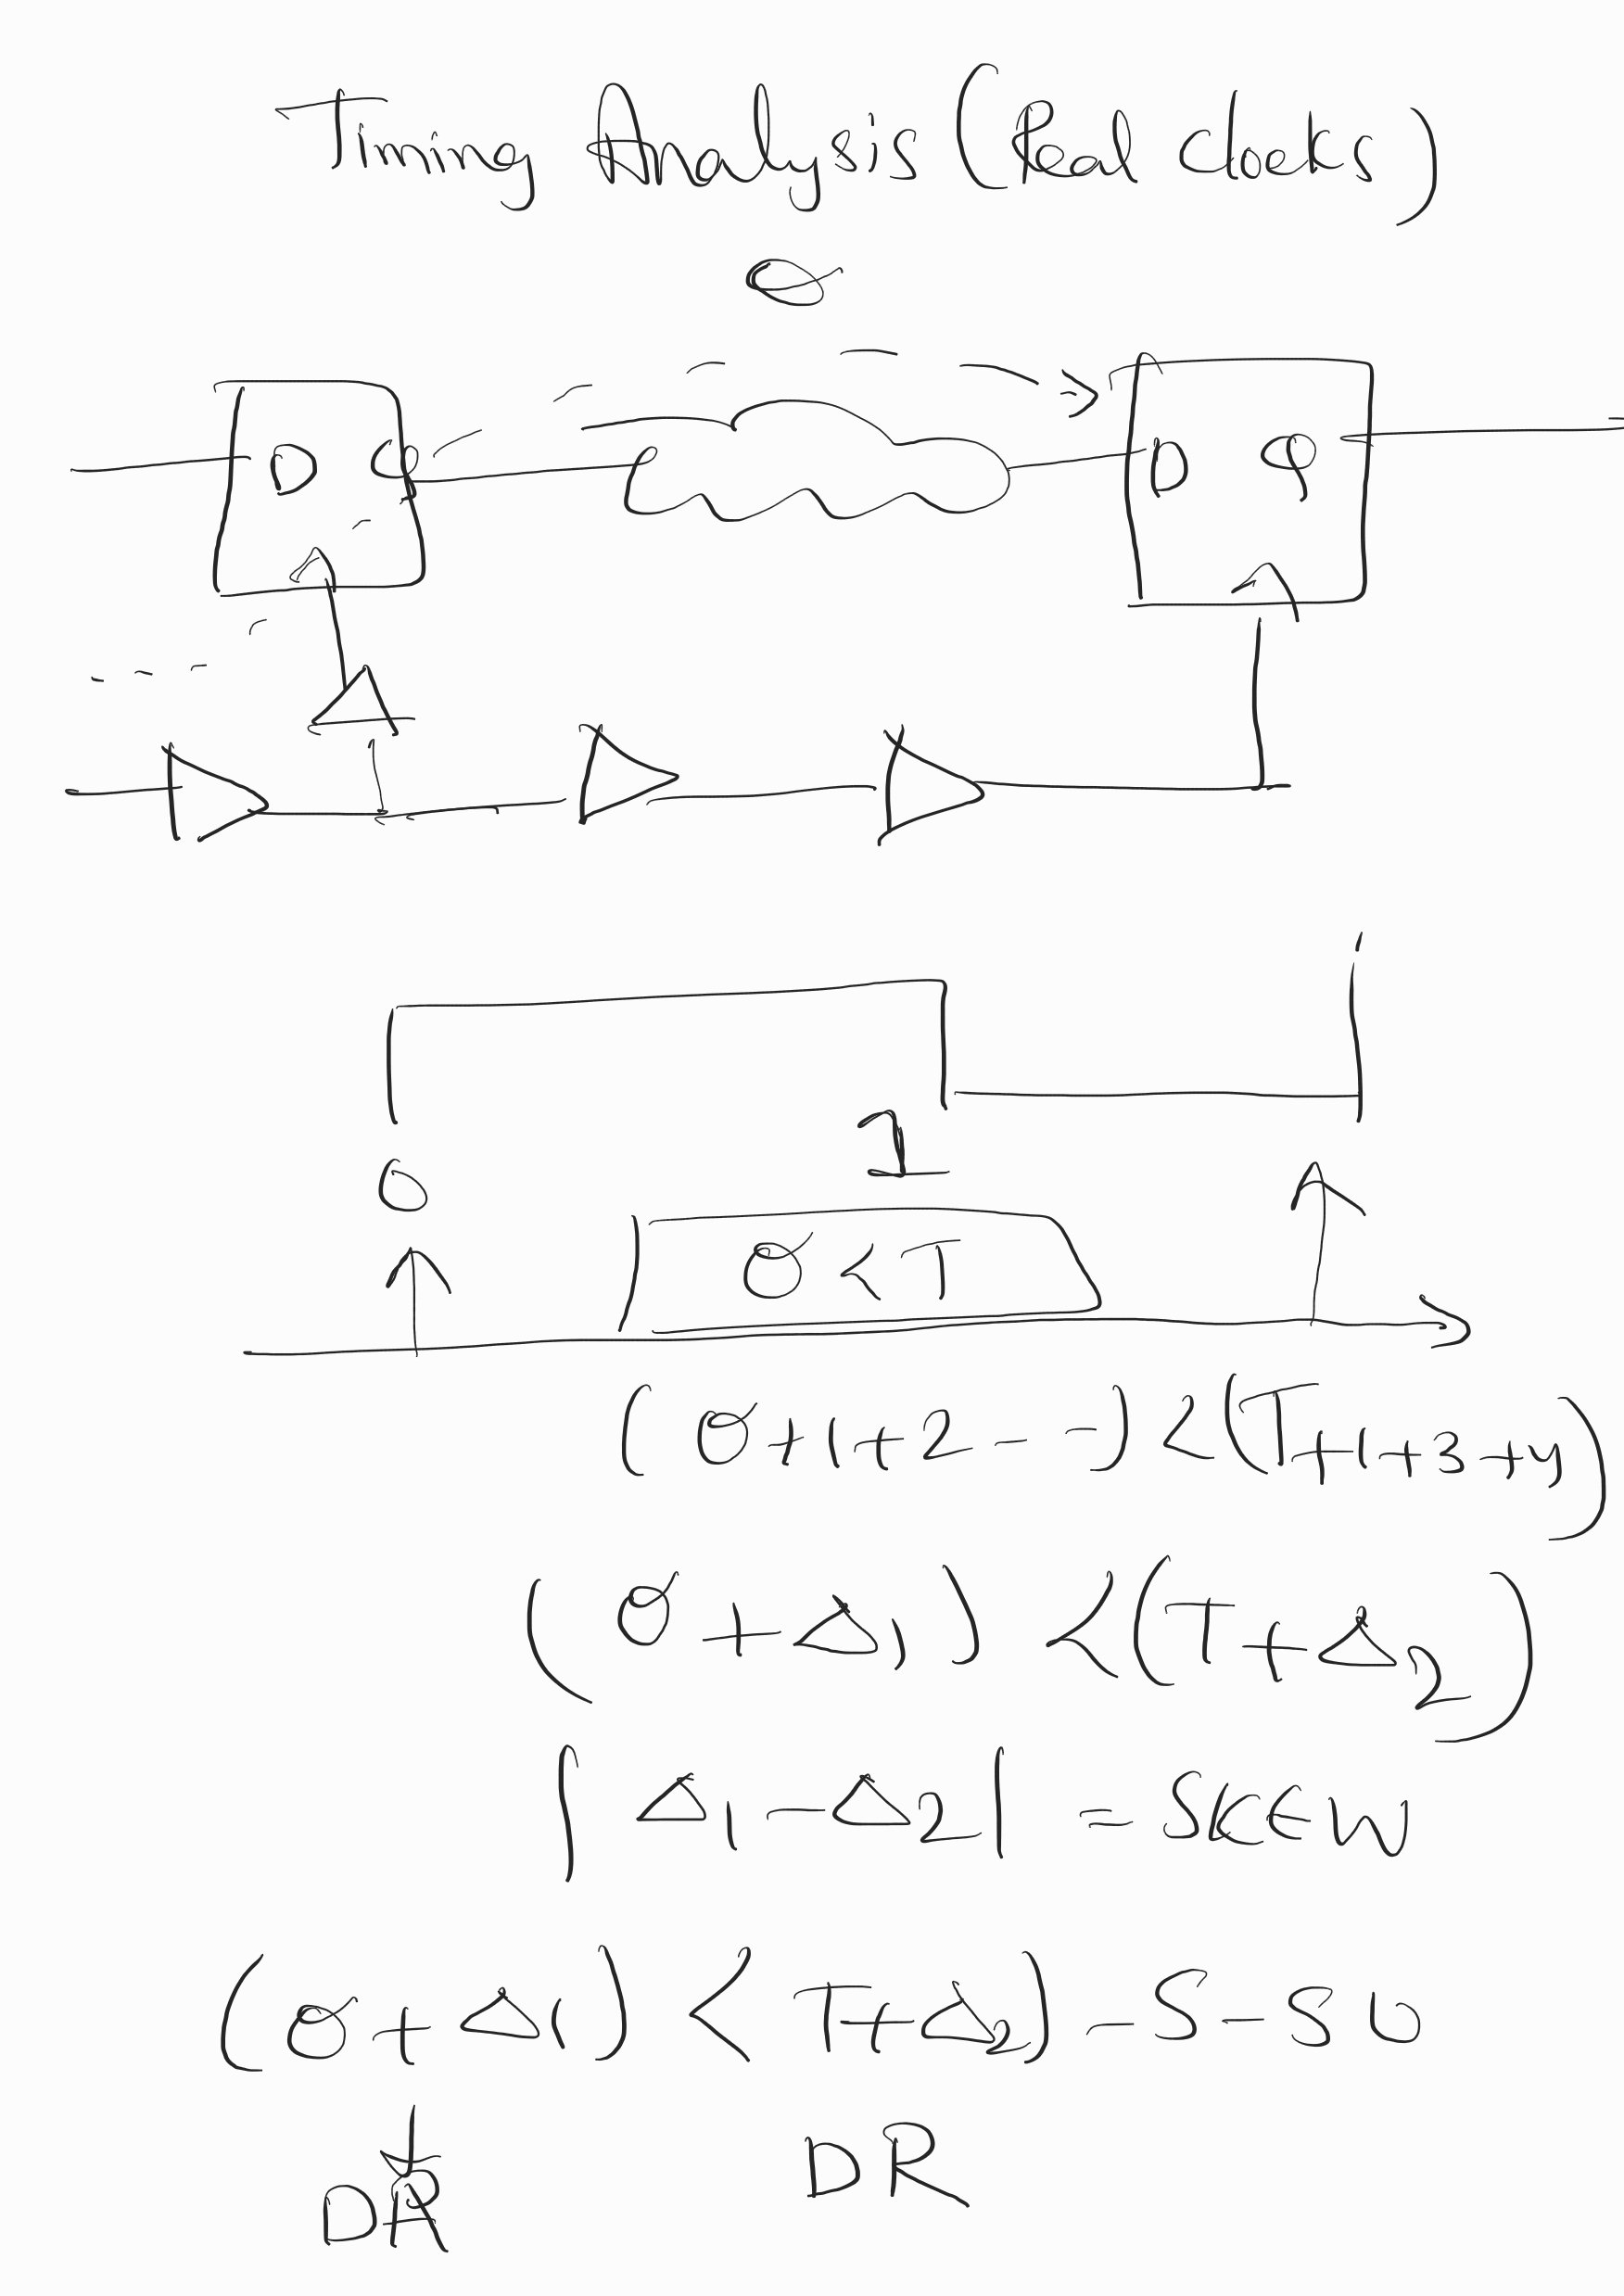 Timing Analysis (Real clock)
θ
D Q D Q
0 1
θ < T
(θ+1+2--) < (T+1+3+4)
(θ+Δ1) < (T+Δ2)
|Δ1-Δ2| = SKEW
(θ+Δ1) < T+Δ2) - S - SU
DR